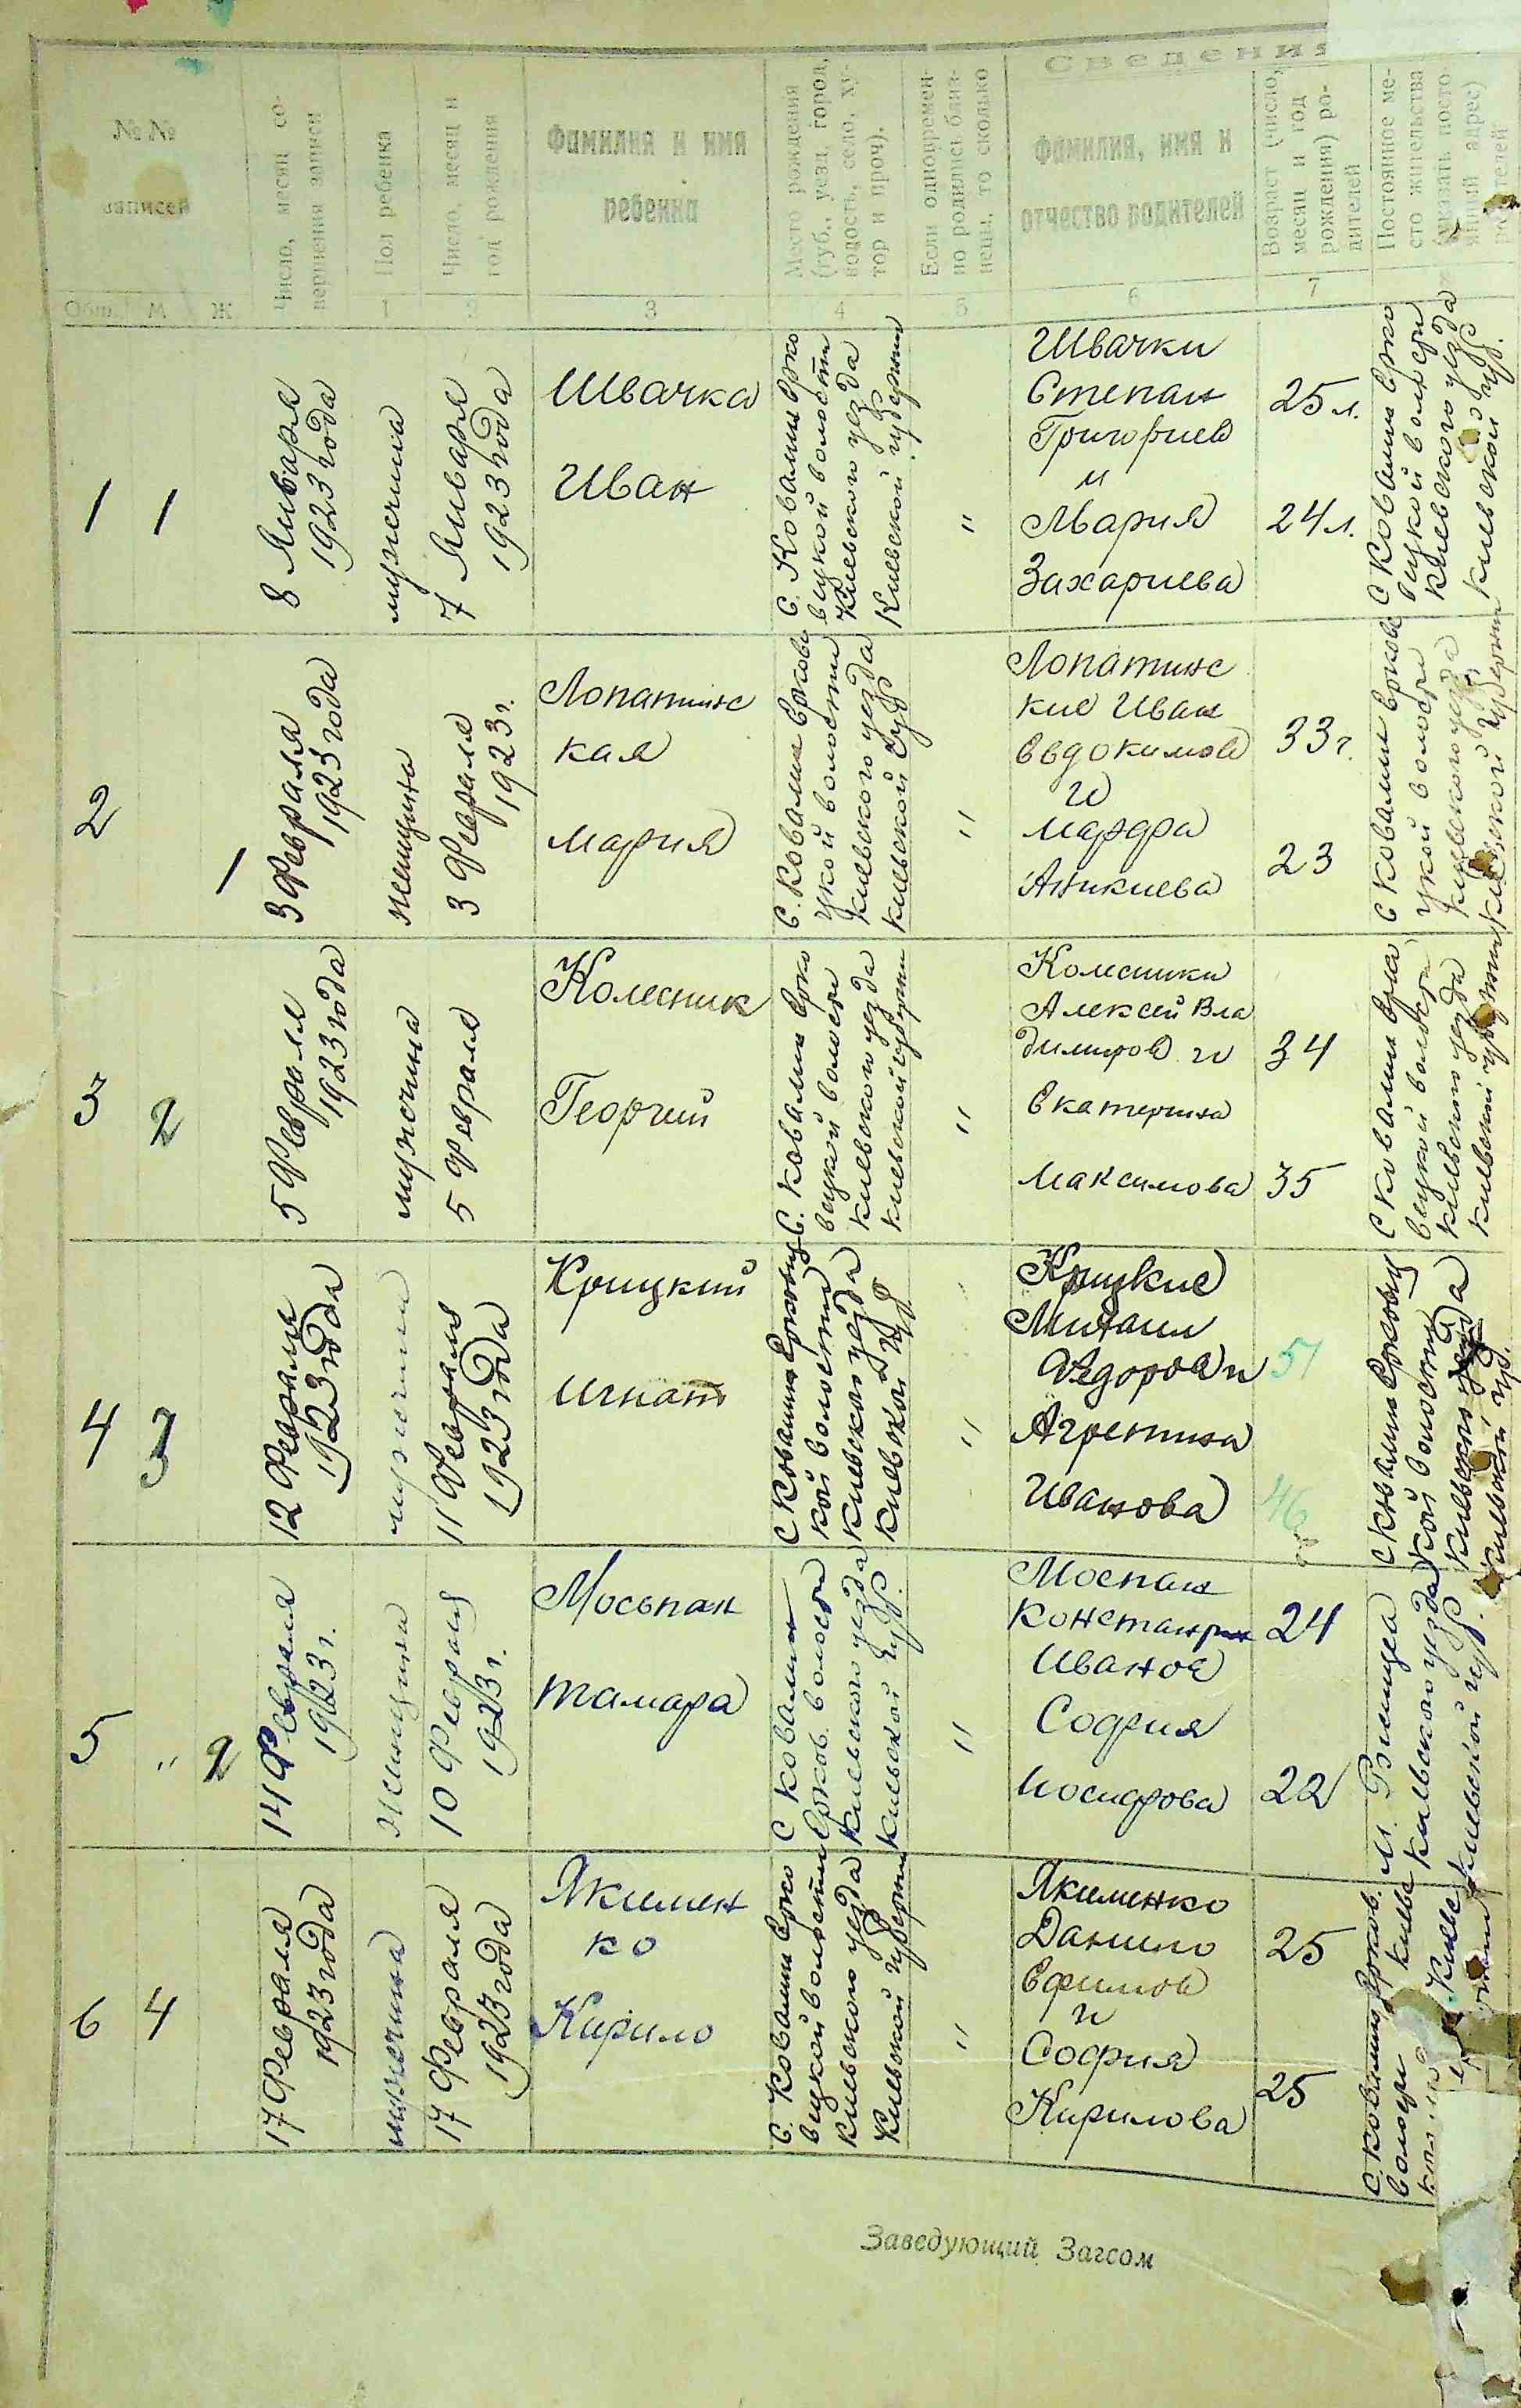 Сведения
№ №
записей
Число, месяц со-
вершения записи
Пол ребенка
Число, месяц и
год рождения
Фамилия и имя
ребенка
Место рождения
(губ., уезд, город,
волость, село, ху-
тор и проч).
Если одновремен-
но родились близ-
нецы, то сколько
Фамилия, имя и
отчество родителей
Возраст (число,
месяц и год
рождения) ро-
дителей
Постоянное ме-
сто жительства
(указать посто-
янный адрес)
родителей
Общ. М Ж
1
2
3
4
5
6
7
1 1
8 Января
1923 года
мужчина
7 Января
1923 года
Швачка
Иван
С. Ковалин Ерко
вецкой волости
Киевского уезда
Киевской губернии
"
Швачки
Степан
Григориев
и
Мария
Захариева
25 л.
24 л.
С Ковалин Ерко
вецкой волости
Киевского уезда
Киевской губ.
2
1
3 Февраля
1923 года
женщина
3 Февраля
1923 г.
Лопатинс
кая
Мария
С. Ковалин Еркове
цкой волости
Киевского уезда
Киевской губ
"
Лопатинс
кие Иван
Евдокимов
и
Марфа
Аникиева
33 г.
23
С Ковалин Еркове
цкой волости
Киевского уезда
Киевской губернии
3 2
5 Февраля
1923 года
мужчина
5 Февраля
Колесник
Георгий
С. Ковалин Ерко
вецкой волости
Киевского уезда
Киевской губернии
"
Колесники
Алексей Вла
димиров и
Екатерина
Максимова
34
35
С Ковалин
вецкой волости
Киевского уезда
Киевской губернии
4 3
12 Февраля
1923 года
мужчина
11 Февраля
1923 года
Крицкий
Игнат
С Ковалин Ерковец
кой волости
Киевского уезда
Киевской губ
"
Крицкие
Михаил
Федоров и
Агрепина
Иванова
51
46
С Ковалин Ерковец
кой волости
Киевского уезда
Киевской губ.
5 " 2
14 Февраля
1923 г.
Женщина
10 Февраля
1923 г.
Мосьпан
Тамара
С Ковалин
Ерков. волости
Киевского уезда
Киевской губ.
"
Моспан
Константин
Иванов
София
Иосифова
24
22
Киевского уезда
Киевской губ.
6 4
17 Февраля
1923 года
мужчина
17 Февраля
1923 года
Якимен
ко
Кирило
С. Ковалин Ерко
вецкой волости
Киевского уезда
Киевской губернии
"
Якименко
Данило
Ефимов
и
София
Кирилова
25
25
С. Ковалин Ерков.
волости Киевс
Заведующий Загсом